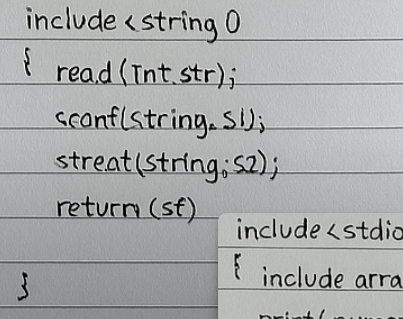 include <string 0
{ read(int.str);
scanf(string. S1);
streat(string;S2);
return (st)
}
include <stdio
{ include arra